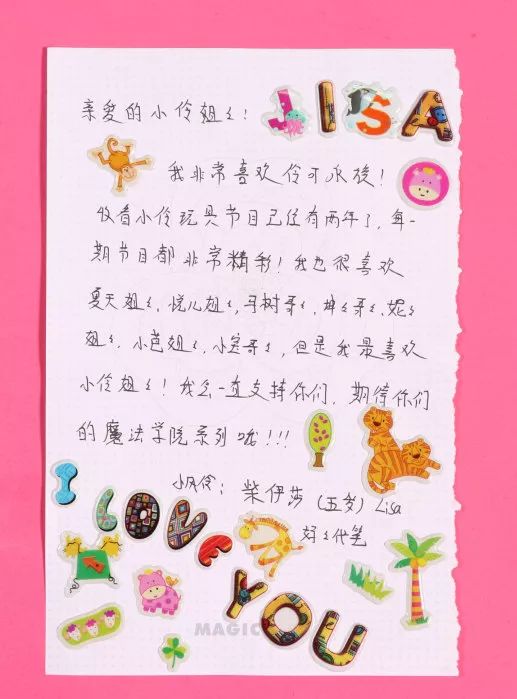 JISA
亲爱的小伶姐々!
我非常喜欢伶可永梭!
收看小伶玩具节目已经有两年了,每一
期节目都非常精彩!我也很喜欢
夏天姐々,悦儿姐々,马树哥々,坤々哥々,妮々
姐々,小芭姐々,小宝哥々,但是我最喜欢
小伶姐々!我会一直支持你们,期待你们
的魔法学院系列哦!!!
小风伶:柴伊莎(五岁)Lisa
妈々代笔
I LOVE
YOU
MAGIC